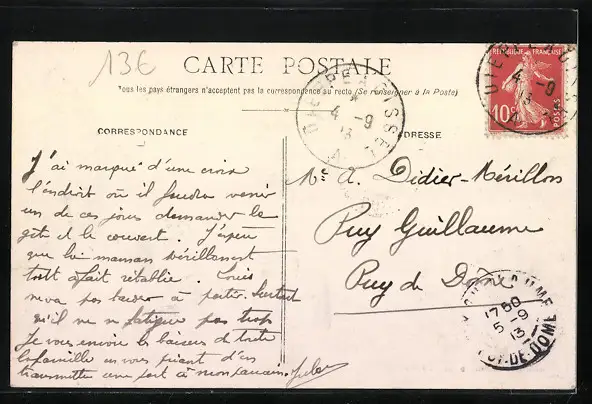 13€
CARTE POSTALE
Tous les pays étrangers n'acceptent pas la correspondance au recto (Se renseigner à la Poste)
CORRESPONDANCE
ADRESSE
RÉPUBLIQUE FRANÇAISE
10c POSTES
4 -9
13
4 -9
13
J'ai marqué d'une croix
l'endroit où il faudra venir
un de ces jours demander le
gîte et le couvert. J'espère
que la maman Mérillon est
tout à fait rétablie. Louis
ne va pas tarder à partir. Surtout
qu'il ne se fatigue pas trop
Je vous envoie les baisers de toute
la famille en vous priant d'en
transmettre une part à mon parrain. Jules
Mr A. Didier-Mérillon
Puy Guillaume
Puy de Dôme
1750
5 -9
13
PUY-DE-DOME